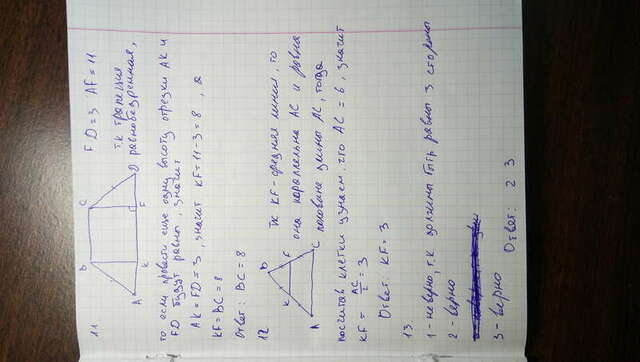 11.
B C
A K F D
FD=3 AF=11
т.к трапеция
равнобедренная,
то если провести еще одну высоту отрезки AK и
FD будут равны, значит
AK=FD=3, значит KF=11-3=8, а
KF=BC=8
Ответ: BC=8
12
B
K F
A C
Тк KF-средняя линия, то
она параллельна AC и равна
половине длины AC, тогда
посчитав клетки узнаем, что AC=6, значит
KF= AC/2 =3
Ответ. KF=3
13.
1-неверно, т.к. должны быть равны 3 стороны
2-верно
3-верно
Ответ: 2 3